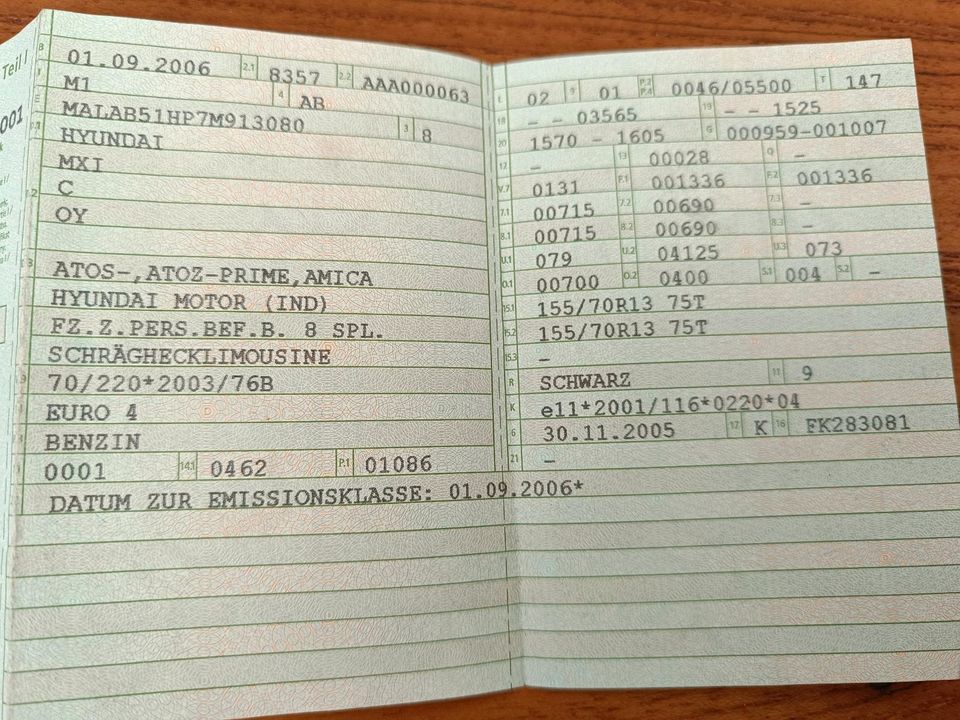 Teil I
001
B 01.09.2006 2.1 8357 2.2 AAA000063
J M1 4 AB
E MALAB51HP7M913080 3 8
D.1 HYUNDAI
MXI
D.2 C
OY
D.3 ATOS-,ATOZ-PRIME,AMICA
HYUNDAI MOTOR (IND)
FZ.Z.PERS.BEF.B. 8 SPL.
SCHRÄGHECKLIMOUSINE
70/220*2003/76B
EURO 4
BENZIN
0001 14.1 0462 P.1 01086
DATUM ZUR EMISSIONSKLASSE: 01.09.2006*
L 02 9 01 P.2 P.4 0046/05500 T 147
18 - - 03565 19 - - 1525
20 1570 - 1605 G 000959-001007
12 - 13 00028 Q -
V.7 0131 F.1 001336 F.2 001336
7.1 00715 7.2 00690 7.3 -
8.1 00715 8.2 00690 8.3 -
U.1 079 U.2 04125 U.3 073
O.1 00700 O.2 0400 S.1 004 S.2 -
15.1 155/70R13 75T
15.2 155/70R13 75T
15.3 -
R SCHWARZ 11 9
K e11*2001/116*0220*04
6 30.11.2005 17 K 16 FK283081
21 -